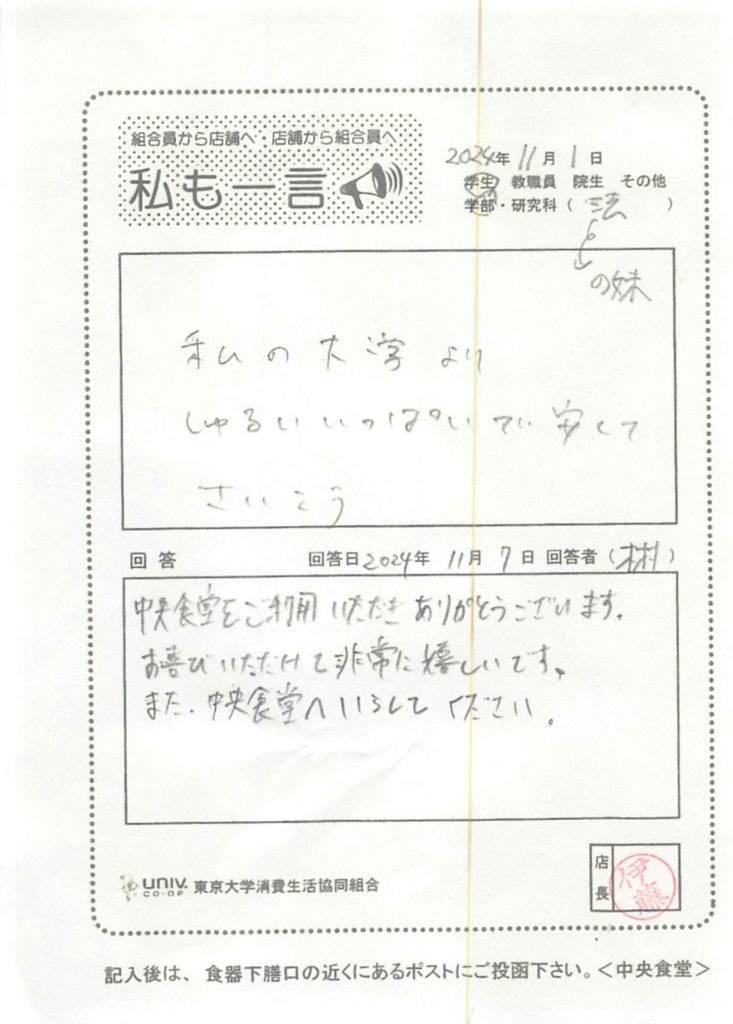 組合員から店舗へ・店舗から組合員へ
私も一言
2024年 11月 1日
学生 教職員 院生 その他
学部・研究科（ 法 ）
の妹
私の大学より
しゅるいいっぱいで安くて
さいこう
回答 回答日2024年 11月 7日 回答者（彬）
中央食堂をご利用いただきありがとうございます。
お喜びいただけて非常に嬉しいです。
また、中央食堂へいらしてください。
店長
伊藤
univ.
CO-OP
東京大学消費生活協同組合
記入後は、食器下膳口の近くにあるポストにご投函下さい。＜中央食堂＞